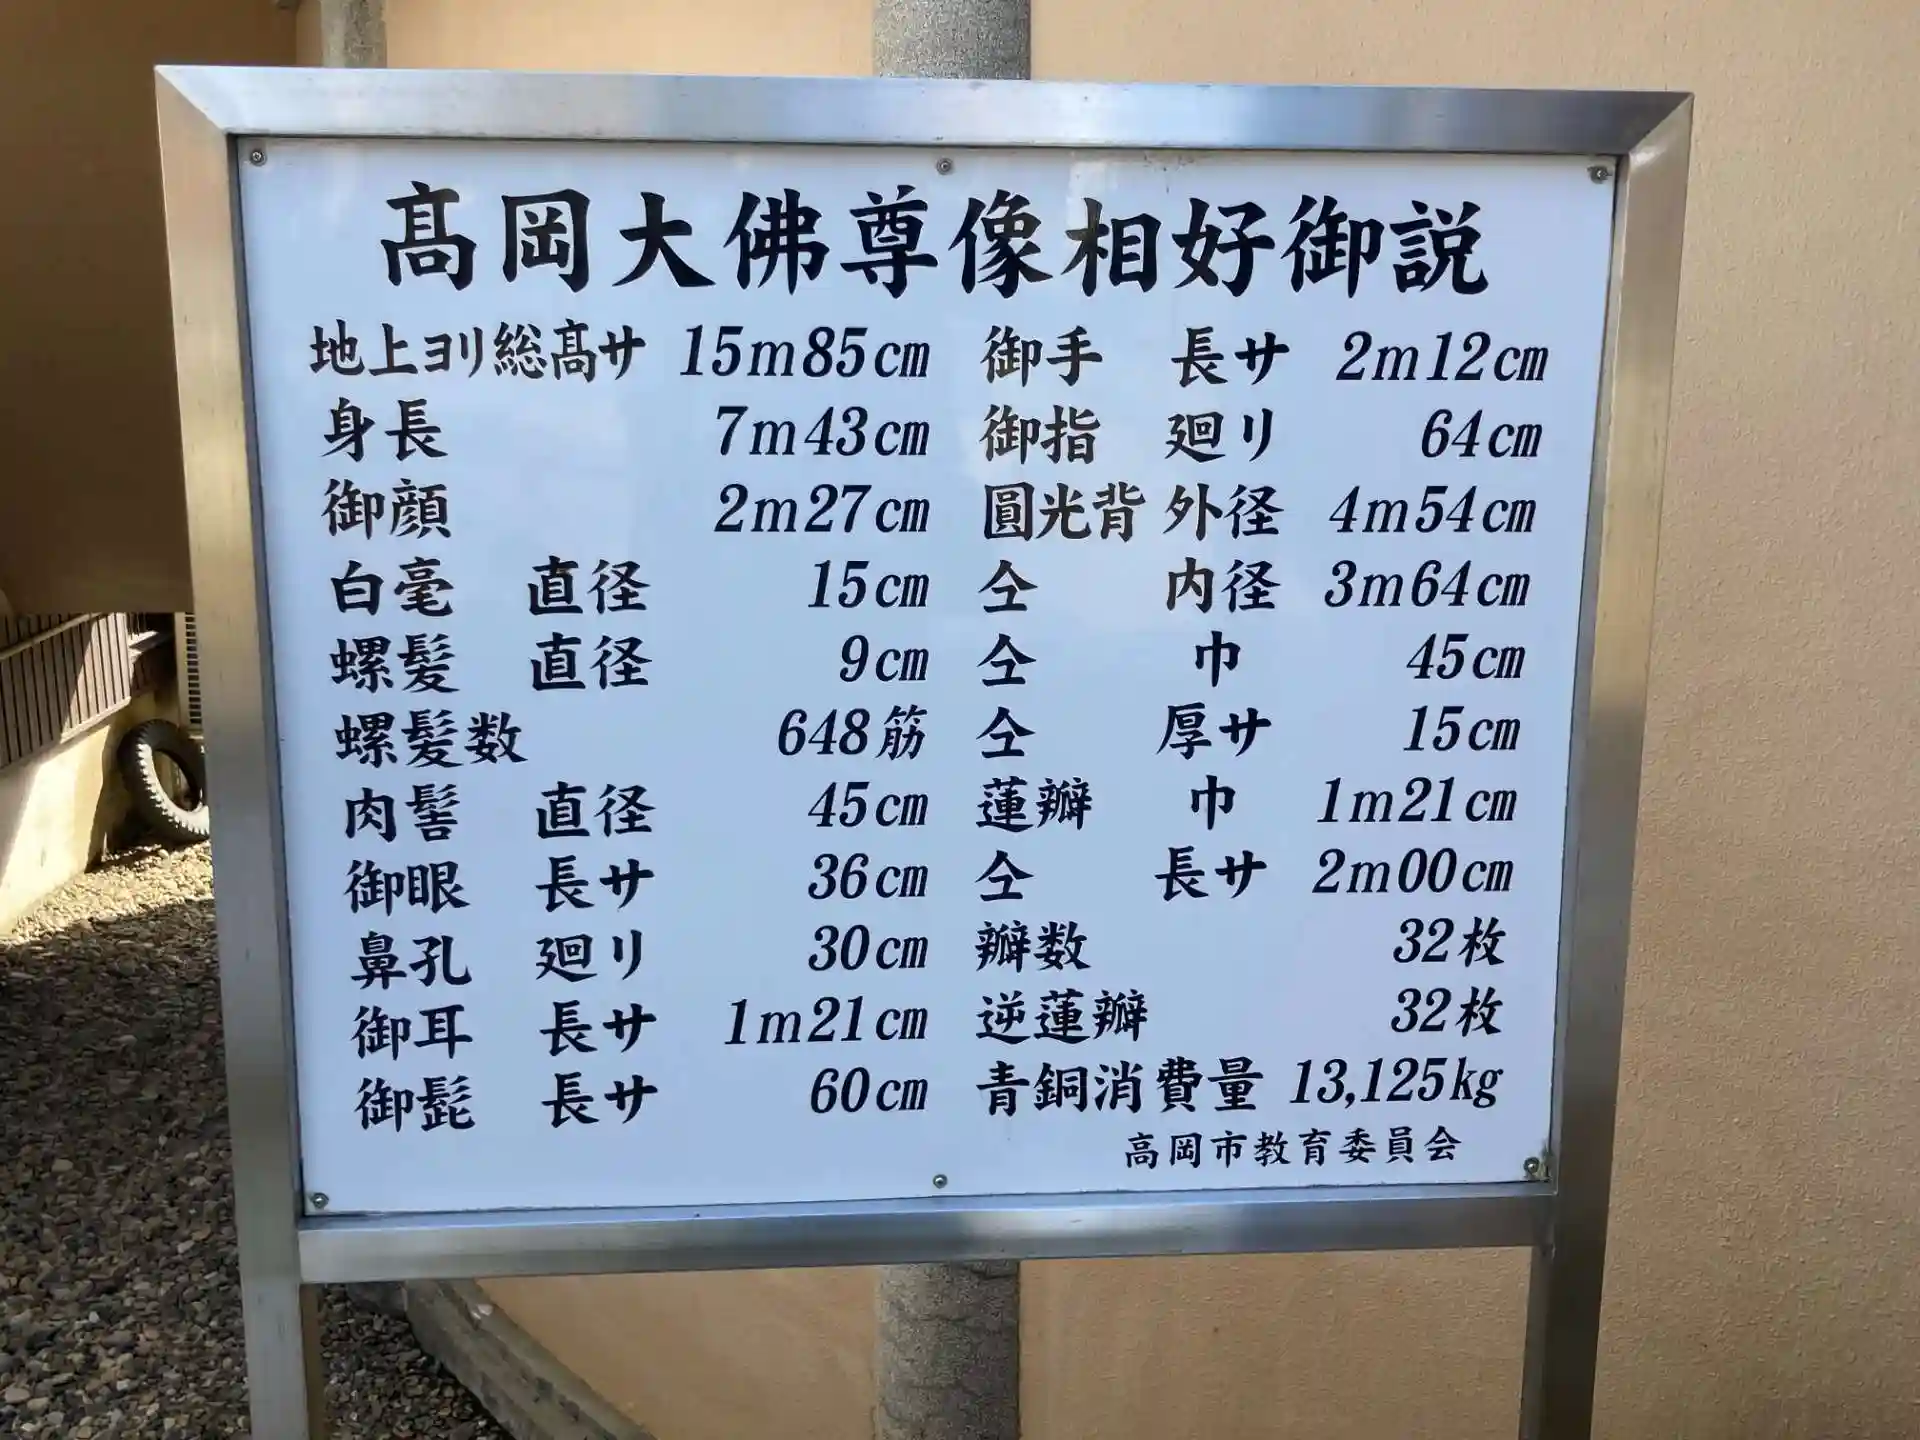 髙岡大佛尊像相好御説
地上ヨリ総髙サ 15m85cm
身長 7m43cm
御顔 2m27cm
白毫 直径 15cm
螺髪 直径 9cm
螺髪数 648筋
肉髻 直径 45cm
御眼 長サ 36cm
鼻孔 廻リ 30cm
御耳 長サ 1m21cm
御髭 長サ 60cm
御手 長サ 2m12cm
御指 廻リ 64cm
圓光背 外径 4m54cm
仝 内径 3m64cm
仝 巾 45cm
仝 厚サ 15cm
蓮瓣 巾 1m21cm
仝 長サ 2m00cm
瓣数 32枚
逆蓮瓣 32枚
青銅消費量 13,125kg
高岡市教育委員会